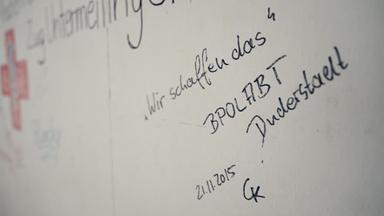 Zug Untermeiting
„Wir schaffen das“
BPOLABT
Duderstadt
21.11.2015
CK